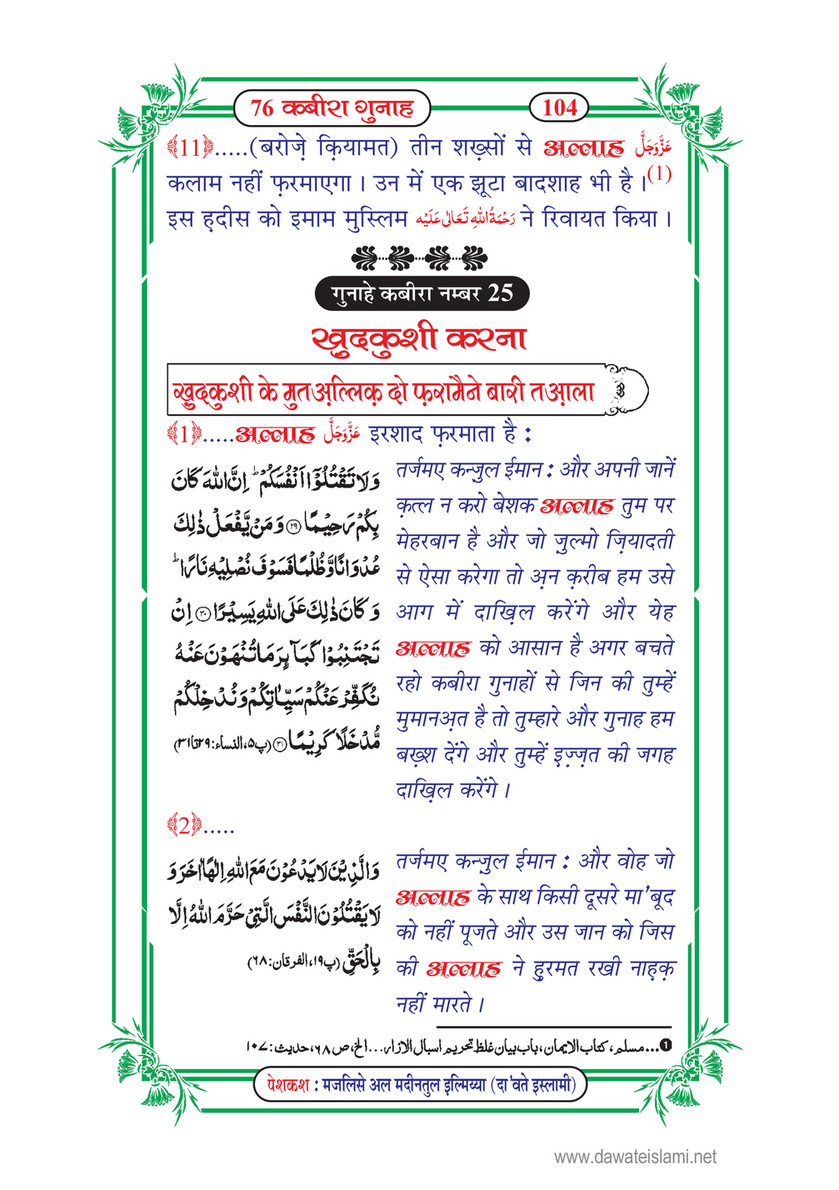 76 कबीरा गुनाह
104
﴾11﴿.....(बरोज़े क़ियामत) तीन शख़्सों से अल्लाह عَزَّوَجَلَّ
कलाम नहीं फ़रमाएगा। उन में एक झूटा बादशाह भी है।(1)
इस ह़दीस को इमाम मुस्लिम رَحْمَةُ اللهِ تَعَالٰى عَلَيْه ने रिवायत किया।
गुनाहे कबीरा नम्बर 25
ख़ुदकुशी करना
ख़ुदकुशी के मुतअ़ल्लिक़ दो फ़रामैने बारी तआ़ला
﴾1﴿.....अल्लाह عَزَّوَجَلَّ इरशाद फ़रमाता है :
وَلَا تَقْتُلُوْۤا اَنْفُسَكُمْؕ اِنَّ اللّٰهَ كَانَ
بِكُمْ رَحِيْمًا ﴿۲۹﴾ وَمَنْ يَّفْعَلْ ذٰلِكَ
عُدْوَانًا وَّظُلْمًا فَسَوْفَ نُصْلِيْهِ نَارًاؕ
وَكَانَ ذٰلِكَ عَلَى اللّٰهِ يَسِيْرًا ﴿۳۰﴾ اِنْ
تَجْتَنِبُوْا كَبَآىِٕرَ مَا تُنْهَوْنَ عَنْهُ
نُكَفِّرْ عَنْكُمْ سَيِّاٰتِكُمْ وَنُدْخِلْكُمْ
مُّدْخَلًا كَرِيْمًا ﴿۳۱﴾ (پ۵، النساء: ۲۹تا۳۱)
तर्जमए कन्ज़ुल ईमान : और अपनी जानें
क़त्ल न करो बेशक अल्लाह तुम पर
मेहरबान है और जो ज़ुल्मो ज़ियादती
से ऐसा करेगा तो अ़न क़रीब हम उसे
आग में दाख़िल करेंगे और येह
अल्लाह को आसान है अगर बचते
रहो कबीरा गुनाहों से जिन की तुम्हें
मुमानअ़त है तो तुम्हारे और गुनाह हम
बख़्श देंगे और तुम्हें इ़ज़्ज़त की जगह
दाख़िल करेंगे।
﴾2﴿.....
وَالَّذِيْنَ لَا يَدْعُوْنَ مَعَ اللّٰهِ اِلٰهًا اٰخَرَ وَ
لَا يَقْتُلُوْنَ النَّفْسَ الَّتِيْ حَرَّمَ اللّٰهُ اِلَّا
بِالْحَقِّ (پ۱۹، الفرقان: ۶۸)
तर्जमए कन्ज़ुल ईमान : और वोह जो
अल्लाह के साथ किसी दूसरे मा'बूद
को नहीं पूजते और उस जान को जिस
की अल्लाह ने हु़रमत रखी नाह़क़
नहीं मारते।
❶...مسلم، کتاب الایمان، باب بیان غلظ تحریم اسبال الازار...الخ، ص۶۸، حدیث: ۱۰۷
पेशकश : मजलिसे अल मदीनतुल इल्मिय्या (दा'वते इस्लामी)
www.dawateislami.net